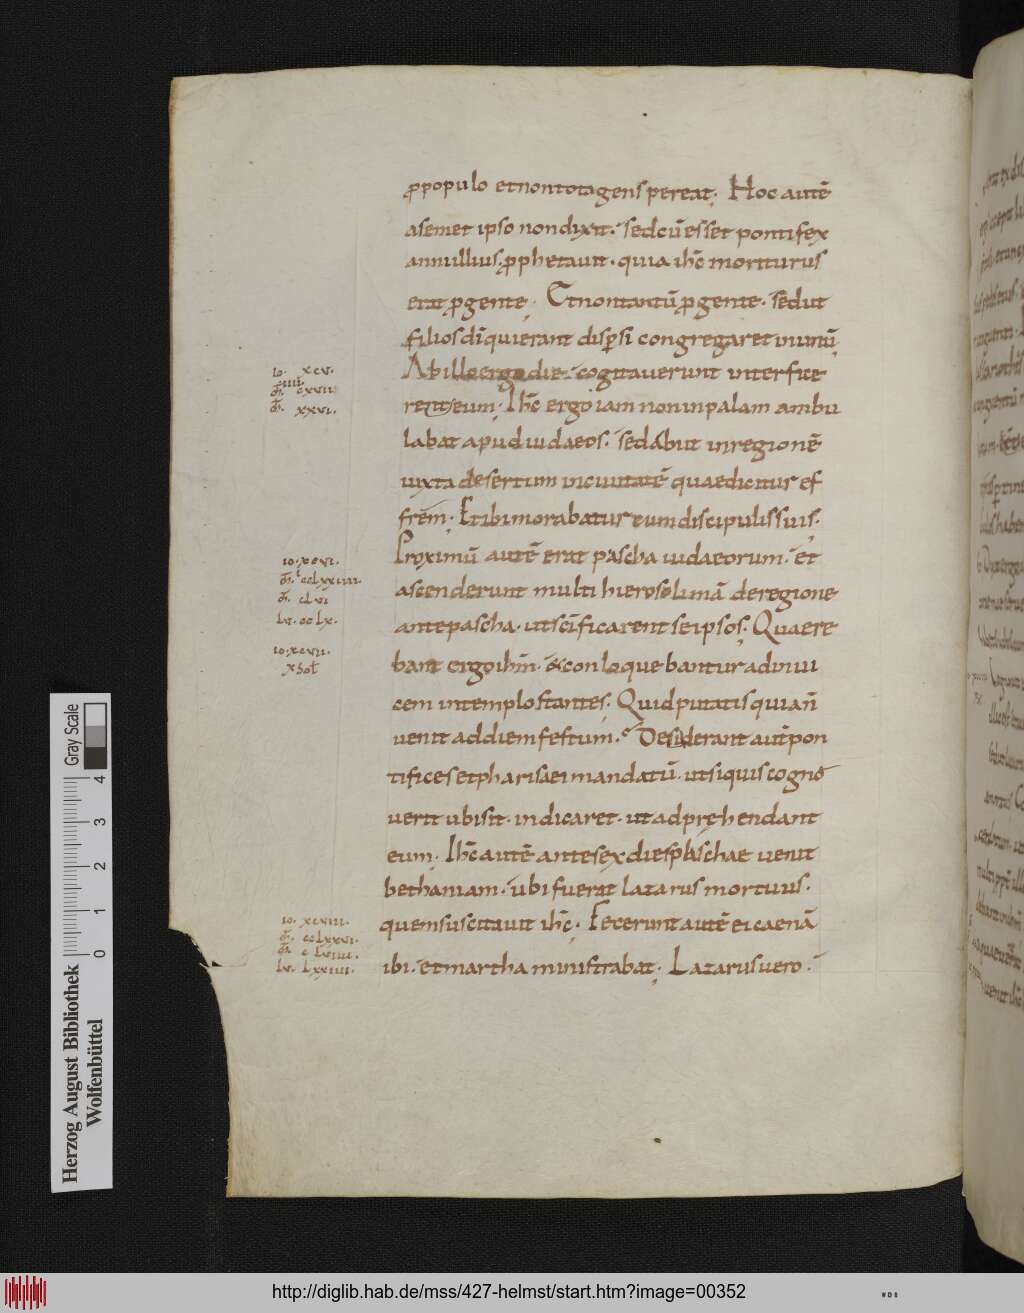 ꝓpopulo et non tota gens pereat. Hoc autē
a semet ipso non dixit. sed cū esset pontifex
anni illius. ꝓphetauit. quia ihc̄ moriturus
erat ꝓ gente. Et non tantū ꝓ gente. sed ut
filios dī qui erant disꝑsi congregaret in unū.
Ab illo ergo die. cogitauerunt interfice
rent eum. Ihc̄ ergo iam non in palam ambu
labat apud iudaeos. sed abiit in regionē
iuxta desertum in ciuitatē quae dicitur ef
frem. Et ibi morabatur cum discipulis suis.
Proximū autē erat pascha iudaeorum. et
ascenderunt multi hierosolimā de regione
ante pascha. ut scīficarent se ipsos. Quaere
bant ergo ihm̄. & conloquebantur ad inui
cem in templo stantes. Quid putatis quia ñ
uenit ad diem festum. Dederant autē pon
tifices et pharisaei mandatū. ut si quis cogno
uerit ubi sit. indicaret. ut adprehendant
eum. Ihc̄ autē ante sex dies paschae uenit
bethaniam. ubi fuerat lazarus mortuus.
quem suscitauit ihc̄. Fecerunt autē ei caenā
ibi. et martha ministrabat. Lazarus uero.
io. xcv.
xxvi.
io. xcvi.
m̄. clvi
lu. cclx.
io. xcvii.
x sol
io. xcviii.
m̄. cclxxvi.
m̄. clviiii.
lu. lxxiiii.
Gray Scale
0 1 2 3 4
Herzog August Bibliothek
Wolfenbüttel
http://diglib.hab.de/mss/427-helmst/start.htm?image=00352